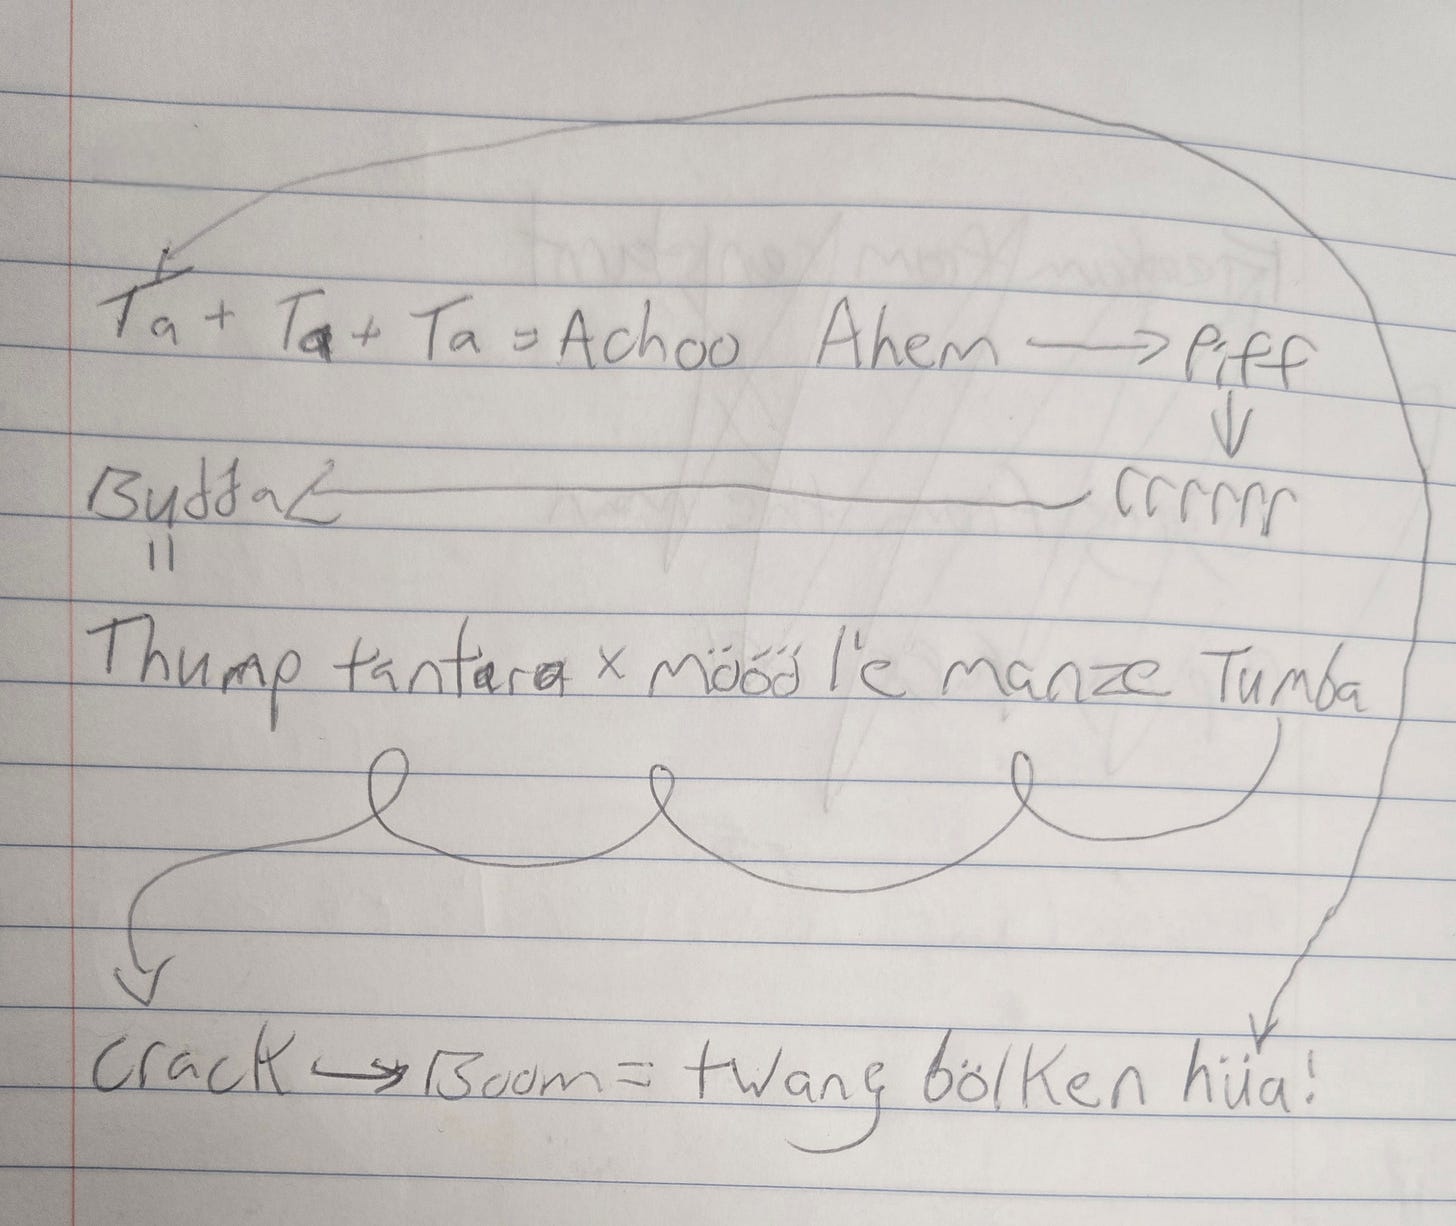 Ta + Ta + Ta = Achoo Ahem → Piff
↓
Budda ← rrrrrr
=
Thump tantara x möööl'e manze Tumba
crack → Boom = twang bölken hüa!